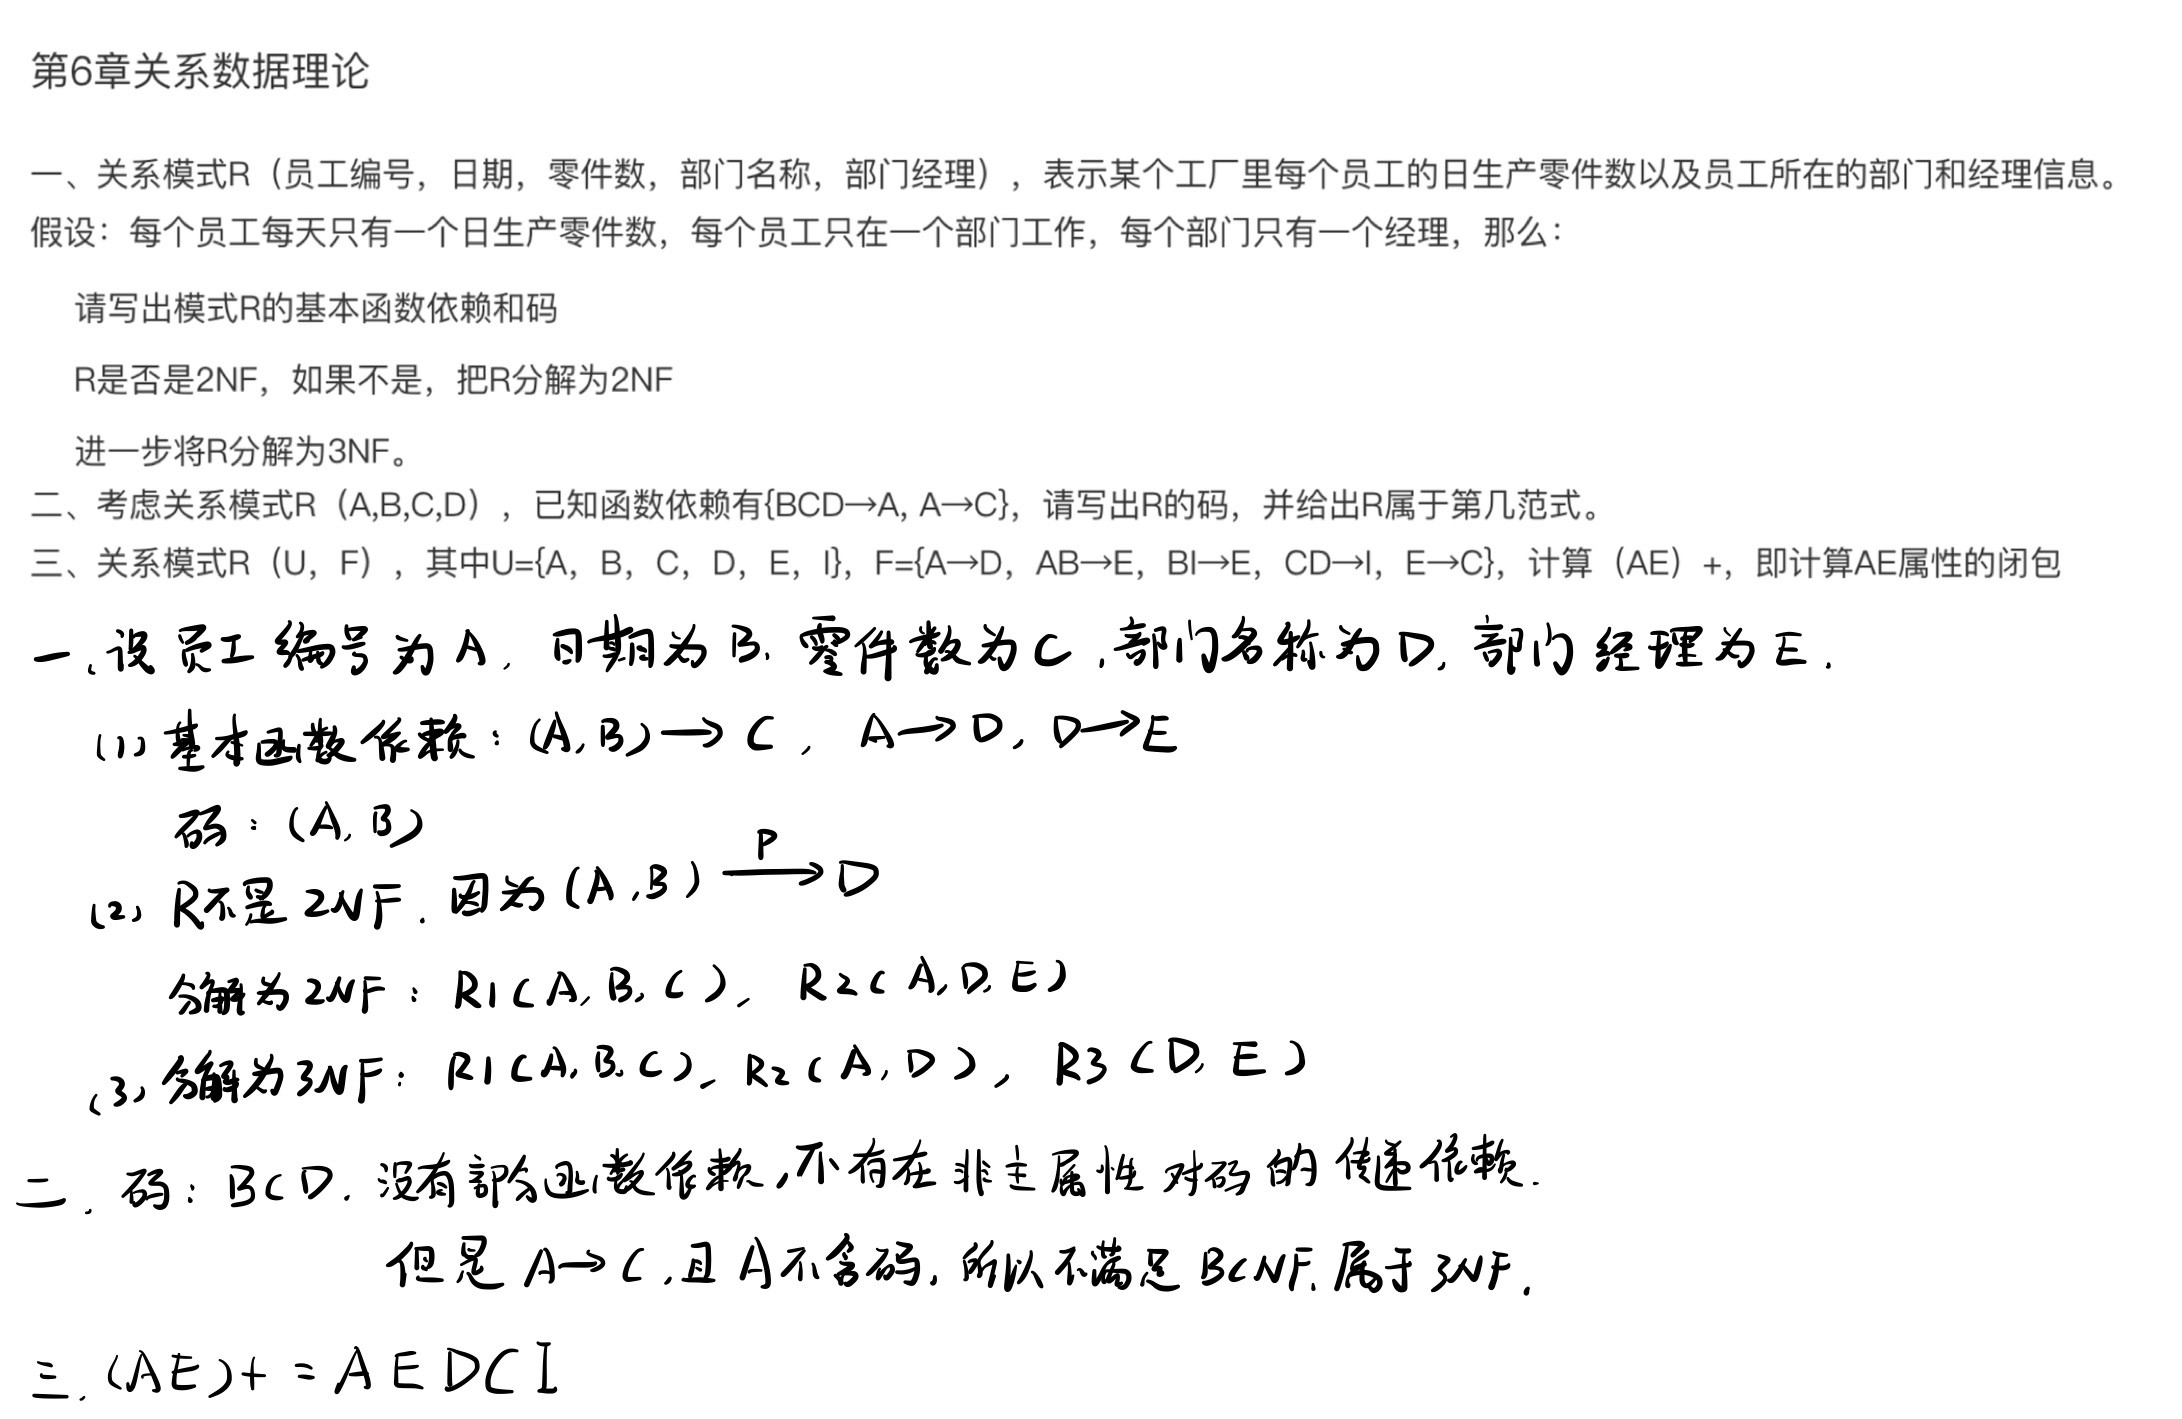 第6章关系数据理论
一、关系模式R（员工编号，日期，零件数，部门名称，部门经理），表示某个工厂里每个员工的日生产零件数以及员工所在的部门和经理信息。
假设：每个员工每天只有一个日生产零件数，每个员工只在一个部门工作，每个部门只有一个经理，那么：
请写出模式R的基本函数依赖和码
R是否是2NF，如果不是，把R分解为2NF
进一步将R分解为3NF。
二、考虑关系模式R（A,B,C,D），已知函数依赖有{BCD→A, A→C}，请写出R的码，并给出R属于第几范式。
三、关系模式R（U，F），其中U={A，B，C，D，E，I}，F={A→D，AB→E，BI→E，CD→I，E→C}，计算（AE）+，即计算AE属性的闭包
一、设员工编号为A，日期为B，零件数为C，部门名称为D，部门经理为E.
(1) 基本函数依赖：(A,B)→C，A→D，D→E
码：(A,B)
P
(2) R不是2NF. 因为(A,B)→D
分解为2NF：R1(A,B,C)、R2(A,D,E)
(3) 分解为3NF：R1(A,B,C)、R2(A,D)，R3(D,E)
二. 码：BCD. 没有部分函数依赖，不存在非主属性对码的传递依赖.
但是A→C，且A不含码，所以不满足BCNF. 属于3NF.
三. (AE)+ = AEDCI